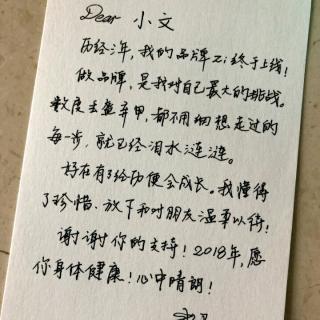 Dear 小文
历经三年,我的品牌Zi终于上线!
做品牌,是我对自己最大的挑战。
数度丢盔弃甲,都不用细想走过的
每一步,就已经泪水涟涟。
好在有了经历便会成长。我懂得
了珍惜、放下和对朋友温柔以待!
谢谢你的支持!2018年,愿
你身体健康!心中晴朗!